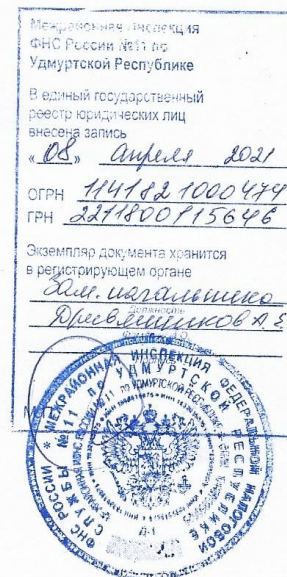 Межрайонная инспекция
ФНС России №11 по
Удмуртской Республике
В единый государственный
реестр юридических лиц
внесена запись
« 08 » апреля 2021
ОГРН 1141821000474
ГРН 2211800115646
Экземпляр документа хранится
в регистрирующем органе
Зам. начальника
должность
Дресвянников А Е
ФНС РОССИИ * МЕЖРАЙОННАЯ ИНСПЕКЦИЯ ФЕДЕРАЛЬНОЙ НАЛОГОВОЙ
СЛУЖБЫ №11 ПО УДМУРТСКОЙ РЕСПУБЛИКЕ